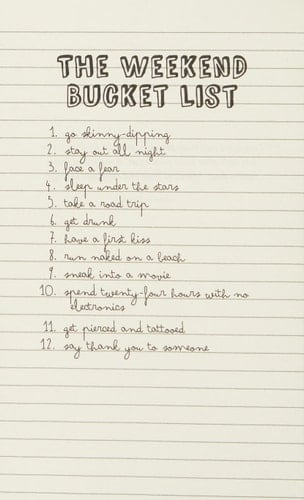 THE WEEKEND
BUCKET LIST
1. go skinny-dipping
2. stay out all night
3. face a fear
4. sleep under the stars
5. take a road trip
6. get drunk
7. have a first kiss
8. run naked on a beach
9. sneak into a movie
10. spend twenty-four hours with no
electronics
11. get pierced and tattooed
12. say thank you to someone